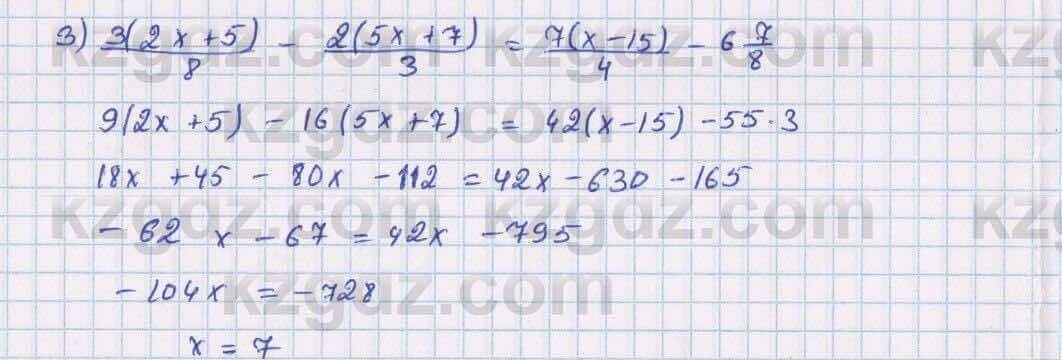 kzgdz.com kzgdz.com K
3) 3(2x+5)/8 - 2(5x+7)/3 = 7(x-15)/4 - 6 7/8
kzgdz.com kzgdz.com
9(2x+5) - 16(5x+7) = 42(x-15) - 55·3
18x + 45 - 80x - 112 = 42x - 630 - 165
kzgdz.com kzgdz.com K
- 62 x - 67 = 42x - 795
- 104x = - 728
kzgdz.com kzgdz.com
x = 7